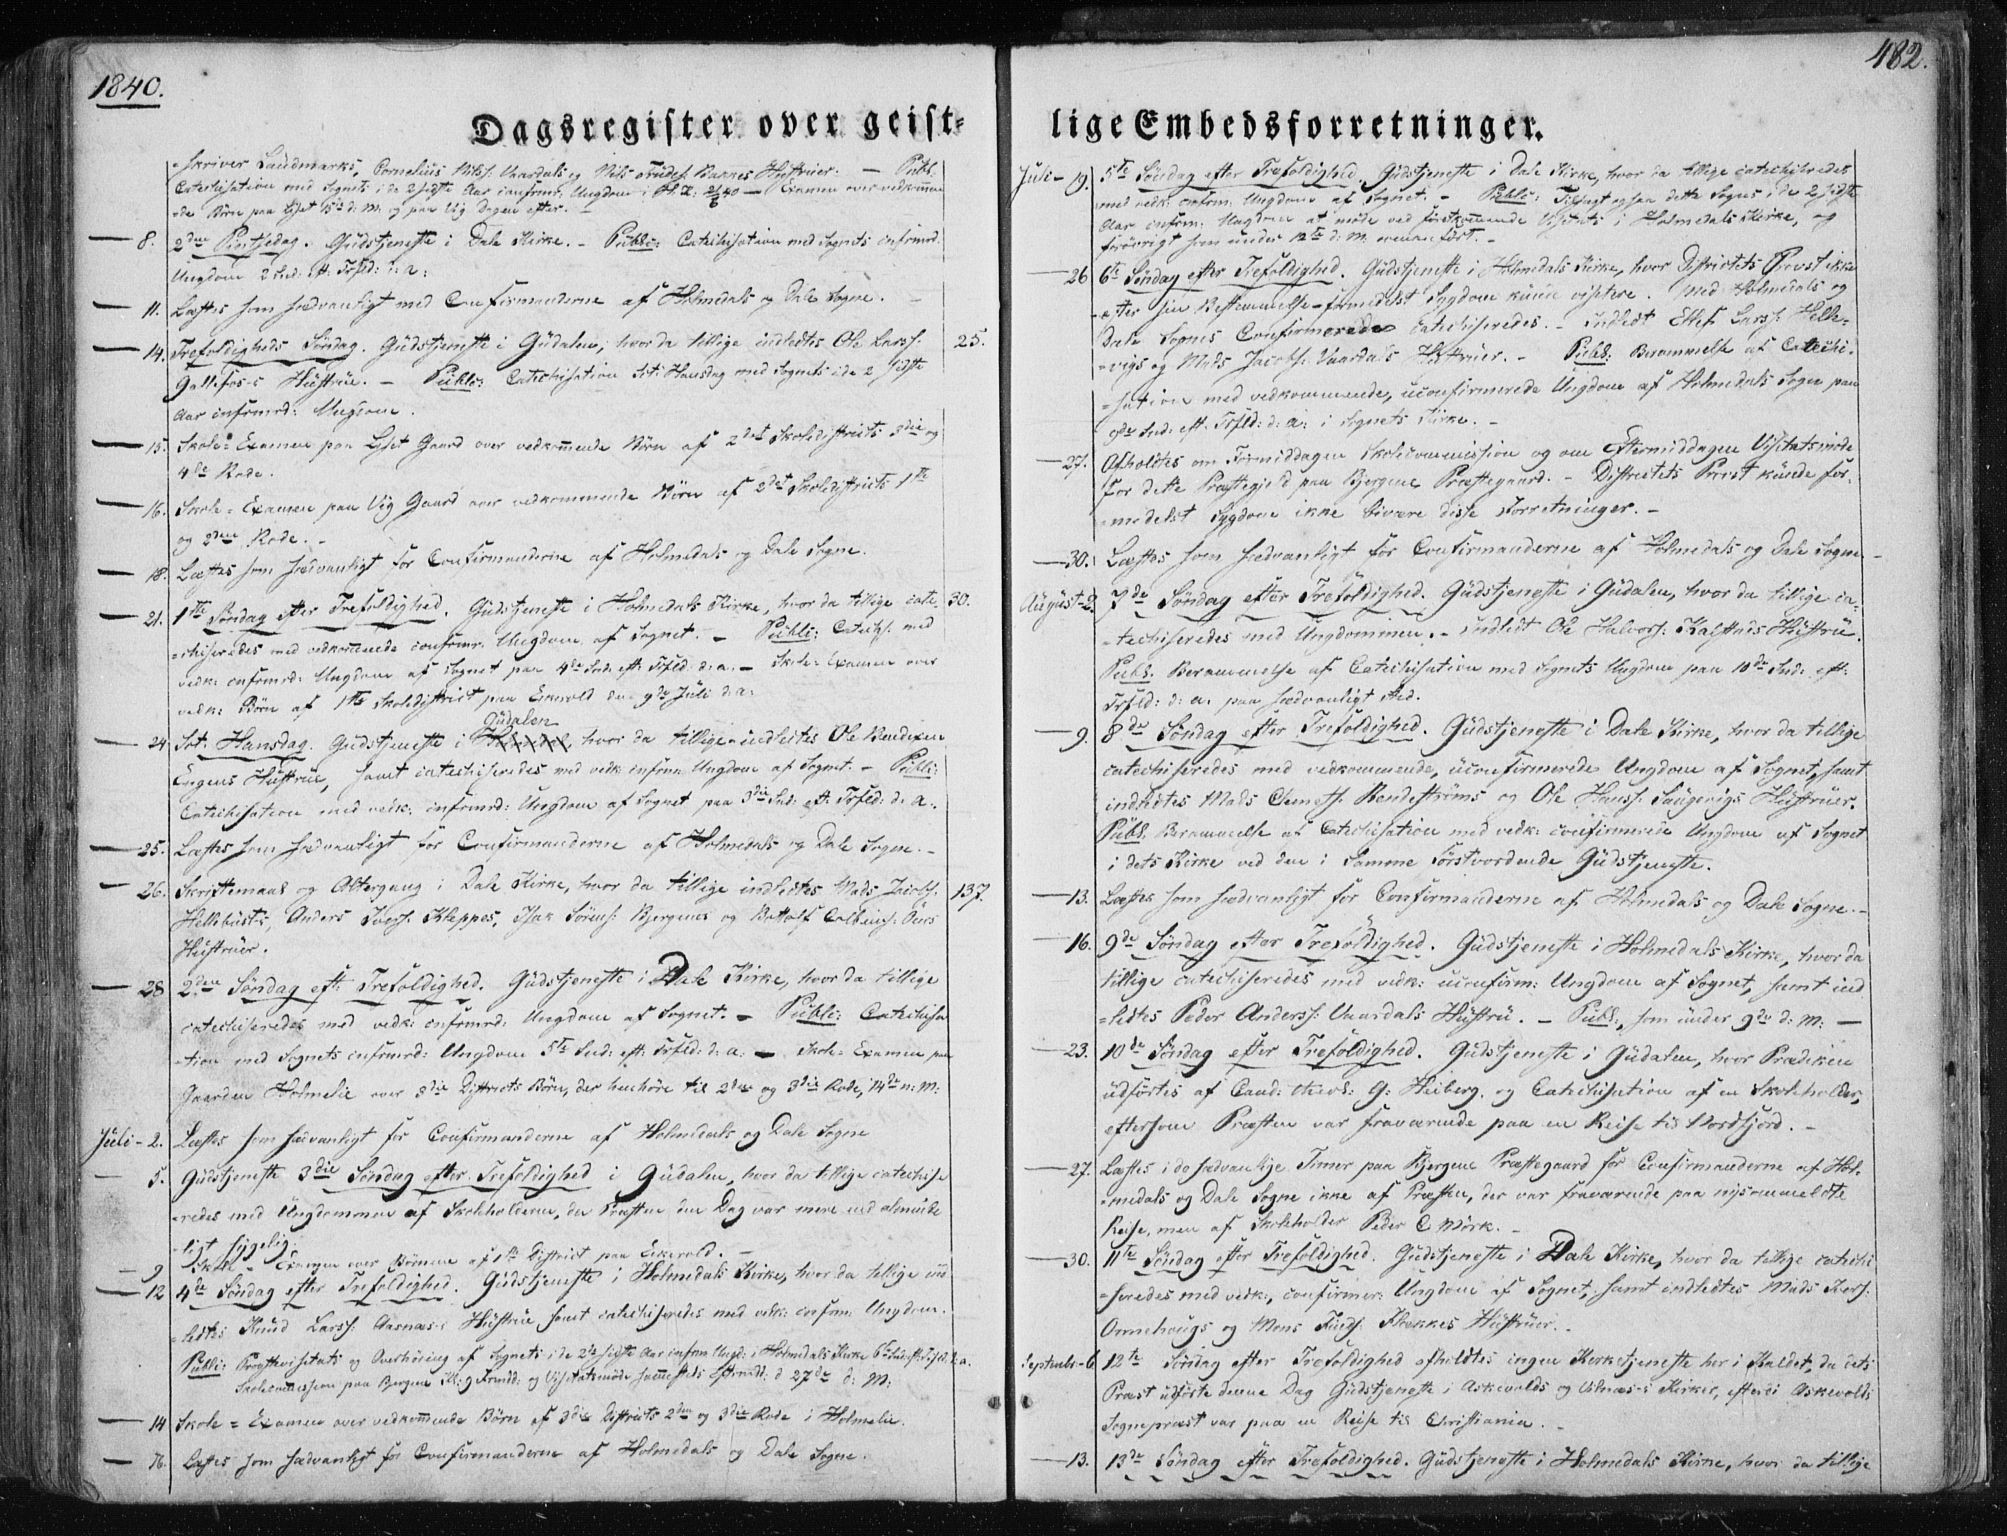 1840.
482.
Dagsregister over geist-
lige Embedsforretninger.
-skriver Landmarks, Cornelius Nilss. Vaardals og Nils Trudes. Bakkes Hustruer. — Publ.
Catechisation med Sognets i de 2 sidste Aar confirm: Ungdom
-de Børn paa Liset 15de d: M: og paa Vig Dagen efter. —
— 8. 2den Pintsedag. Gudstjeneste i Dale Kirke. - Publ: Catechisation med Sognets cnfrmrd.
Ungdom 2 Snd: eft: Trfld: d: a:
— 11. Læstes som sædvanligt med Confirmanderne af Holmedals og Dale Sogne. —
— 14. Trefoldigheds Søndag. Gudstjeneste i Gudalen, hvor da tillige indledtes Ole Larss. 25.
Hustrue. — Publ: Catechisation Sct: Hansdag med Sognets i de 2 sidste
Aar cnfrmrd: Ungdom.
— 15. Skole-Examen paa Liset Gaard over vedkommende Børn af 2det Skoledistricts 3die og
4de Rode.
— 16. Skole-Examen paa Vig Gaard over vedkommende Børn af 2det Skoledistricts 1ste
og 2den Rode. -
— 18. Læstes som sædvanligt for Confirmanderne af Holmedals og Dale Sogne.
— 21. 1ste Søndag efter Trefoldighed. Gudstjeneste i Holmedals Kirke, hvor da tillige cate- 30.
-chiseredes med vedkommende confrmr. Ungdom af Sognet. — Publ: Catechs. med
vedk: cnfrmrd: Ungdom af Sognet paa 4de Snd: eft: Trfld: d: a. — Skole-Examen over
vedk: Børn af 1ste Skoledistrict paa Eikevold den 9de Juli d: a:
Gudalen
— 24. Sct. Hansdag. Gudstjeneste i Holmedal, hvor da tillige indledtes Ole Bendixen
Engens Hustrue, samt catechiseredes med vedk: cnfrm Ungdom af Sognet. — Publ:
Catechisation med vedk: cnfrmrd: Ungdom af Sognet paa 3die Snd: eft: Trfld: d: a.
— 25. Læstes som sædvanligt for Confirmanderne af Holmedals og Dale Sogne. —
— 26. Skriftemaal og Altergang i Dale Kirke, hvor da tillige indledtes Mads Jacobs. 137.
Anders Ivers. Kleppes, Isak Sørens: Bjergenes og Bottolf
Hustruer.
— 28 2den Søndag eft: Trefoldighed. Gudstjeneste i Dale Kirke, hvor da tillige
catechiseredes med vedk: cnfrmrd: Ungdom af Sognet. — Publ: Catechisa
-tion med Sognets cnfrmrd: Ungdom 5te Snd: eft: Trfld: d: a: — Skole-Examen paa
Gaarden Holmelie over 3die Districts Børn, der henhøre til 2den og 3die Rode, 14de n: M:
Juli - 2. Læstes som sædvanligt for Confirmanderne af Holmedals og Dale Sogne
— 5. Gudstjeneste 3die Søndag efter Trefoldighed i Gudalen, hvor da tillige catechise
-redes med Ungdommen af Skoleholderen, da Præsten den Dag var mere end alminde
-ligt sygelig.
— 9 Skole-Examen over Børnene af 1ste District paa Eikevold. —
— 12 4de Søndag efter Trefoldighed. Gudstjeneste i Holmedals Kirke, hvor da tillige ind
-ledtes Knud Larss: Hustrue samt catechiseredes med vedk: confrm: Ungdom.
Publ: Provstevisitats og Overhøring af Sognets i de 2de sidste Aar cnfrm Ungd: i Holmedals Kirke 6te Snd: eft: Trfld: d. a.
Skolecommission paa Bjergene Kl: 9 Frmdd: og Visitatsmøde sammesteds Eftrmdd: d 27de d: M:
— 14 Skole-Examen over vedkommende Børn af 3die Districts 2den og 3die Rode i Holmelie.
— 16. Læstes som sædvanligt for Confirmanderne af Holmedals og Dale Sogne.
Juli - 19. 5te Søndag efter Trefoldighed. Gudstjeneste i Dale Kirke, hvor da tillige catechiseredes
med vedk: cnfrm: Ungdom af Sognet. — Publ: Tilsagt ogsaa dette Sogns i de 2 sidste
Aar cnfrm: Ungdom at møde ved forestkommende Visitats i Holmedals Kirke, og
forøvrigt som under 12te d: M. ovenanført. -
— 26 6te Søndag efter Trefoldighed. Gudstjeneste i Holmedals Kirke, hvor Districtets Provst ikke
efter sin Bestemmelse formedelst Sygdom kunde visitere. Med Holmedals og
Dale Sognes Confirmerede catechiseredes. - Indledt Ellef Larss. Helle-
-vigs og Mads Jacobs: Vaardals Hustruer. — Publ: Berammelse af Catechi-
-sation med vedkommende, uconfirmerede Ungdom af Holmedals Sogn paa
9de Snd: eft. Trfld: d: a: i Sognets Kirke. -
— 27. Afholdtes om Formiddagen Skolecommission og om Eftermiddagen Visitatsmøde
for dette Præstegjeld paa Bjergene Præstegaard. - Districtets Provst kunde for-
-medelst Sygdom ikke bivære disse Forretninger. —
— 30. Læstes som sædvanligt for Confirmanderne af Holmedals og Dale Sogne —
August - 2. 7de Søndag efter Trefoldighed. Gudstjeneste i Gudalen, hvor da tillige ca-
-techiseredes med Ungdommen. - Indledt Ole Halvors: Kalstads Hustru.
Publ. Berammelse af Catechisation med Sognets Ungdom paa 10de Snd: eft:
Trfld: d: a. paa sædvanligt Sted.
— 9. 8de Søndag efter Trefoldighed. Gudstjeneste i Dale Kirke, hvor da tillige
catechiseredes med vedkommende, uconfirmerede Ungdom af Sognet, samt
indledtes Mads Clemets. og Ole Hans: Hustruer.
Publ. Berammelse af Catechisation med vedk: confirmerede Ungdom af Sognet
i dets Kirke ved den i Samme førstvordende Gudstjeneste.
— 13. Læstes som sædvanligt for Confirmanderne af Holmedals og Dale Sogne. —
— 16. 9de Søndag efter Trefoldighed. Gudstjeneste i Holmedals Kirke, hvor da
tillige catechiseredes med vedk: uconfirm: Ungdom af Sognet, samt ind
-ledtes Peder Anderss: Vaardals Hustru. — Publ., som under 9de d: M: —
— 23. 10de Søndag efter Trefoldighed. Gudstjeneste i Gudalen, hvor Prædiken
udførtes af Cand: theol: G: Heiberg, og Catechisation af en Skoleholder,
eftersom Præsten var fraværende paa en Reise til Nordfjord. -
— 27. Læstes i de sædvanlige Timer paa Bjergene Præstegaard for Confirmanderne af Hol-
-medals og Dale Sogne ikke af Præsten, der var fraværende paa nysanmeldte
Reise, men af Skoleholder Peder C Mørk. -
— 30. 11te Søndag efter Trefoldighed. Gudstjeneste i Dale Kirke, hvor da tillige catechi
-seredes med vedk:, confirmer: Ungdom af Sognet, samt indledtes Mads
Ormehougs og Mons Hustruer. -
Septembr - 6 12te Søndag efter Trefoldighed afholdtes ingen Kirketjeneste her i Kaldet, da dets
Præst udførte denne Dag Gudstjeneste i Askevolds og Vilnæs-s Kirker, efterdi Askevolds
Sognepræst var paa en Reise til Christiania. -
— 13. 13de Søndag efter Trefoldighed. Gudstjeneste i Holmedals Kirke, hvor da tillige